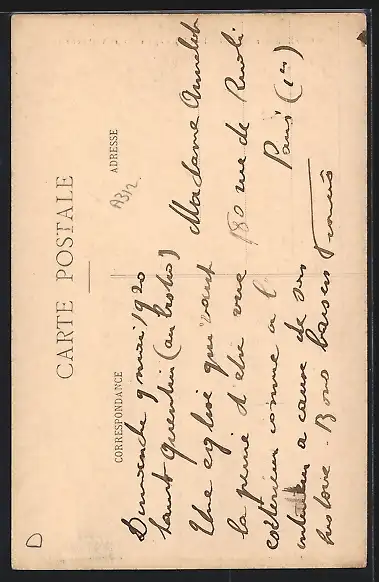 CARTE POSTALE
CORRESPONDANCE
ADRESSE
A312
Dimanche 9 mai 1920
Saint Quentin (au bistro)
Une église qui vaut
la peine d'être vue
extérieur comme à l'
intérieur a cause de son
histoire. Bons baisers
Francis
Madame
180 rue de Rivoli
Paris (1er)
D